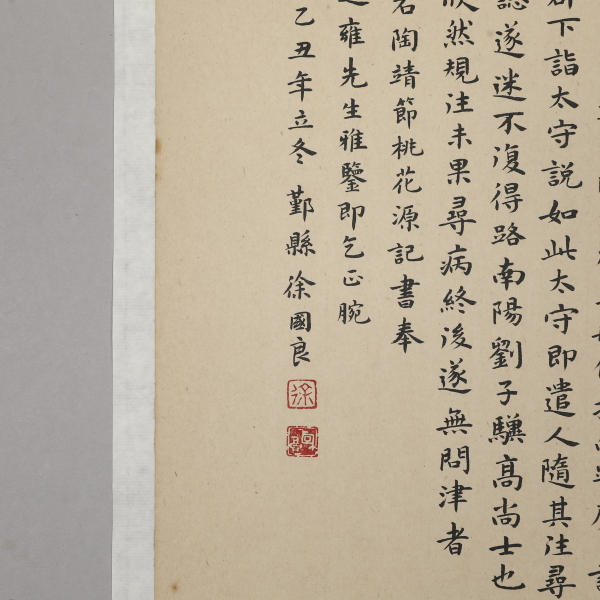 郡下詣太守説如此太守即遣人隨其注尋
誌遂迷不復得路南陽劉子驥髙尚士也
欣然規注未果尋病終後遂無問津者
右陶靖節桃花源記書奉
雍先生雅鑒即乞正腕
乙丑年立冬 鄞縣徐國良
徐